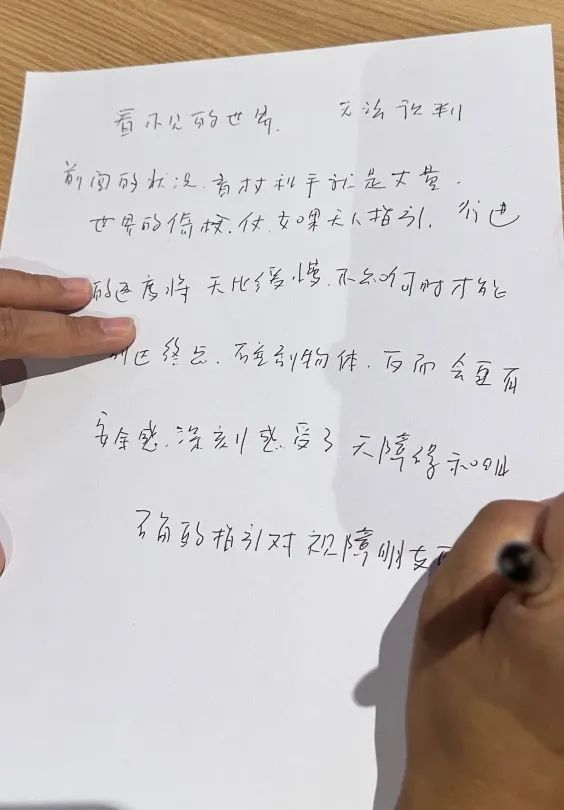 看不见的世界. 无法预判
前面的状况.盲杖和手就是丈量.
世界的倚仗.如果无人指引. 行进
的速度将无比缓慢.不知何时才能
到达终点.碰到物体.反而会更有
安全感.深刻感受了无障碍和明
确的指引对视障朋友